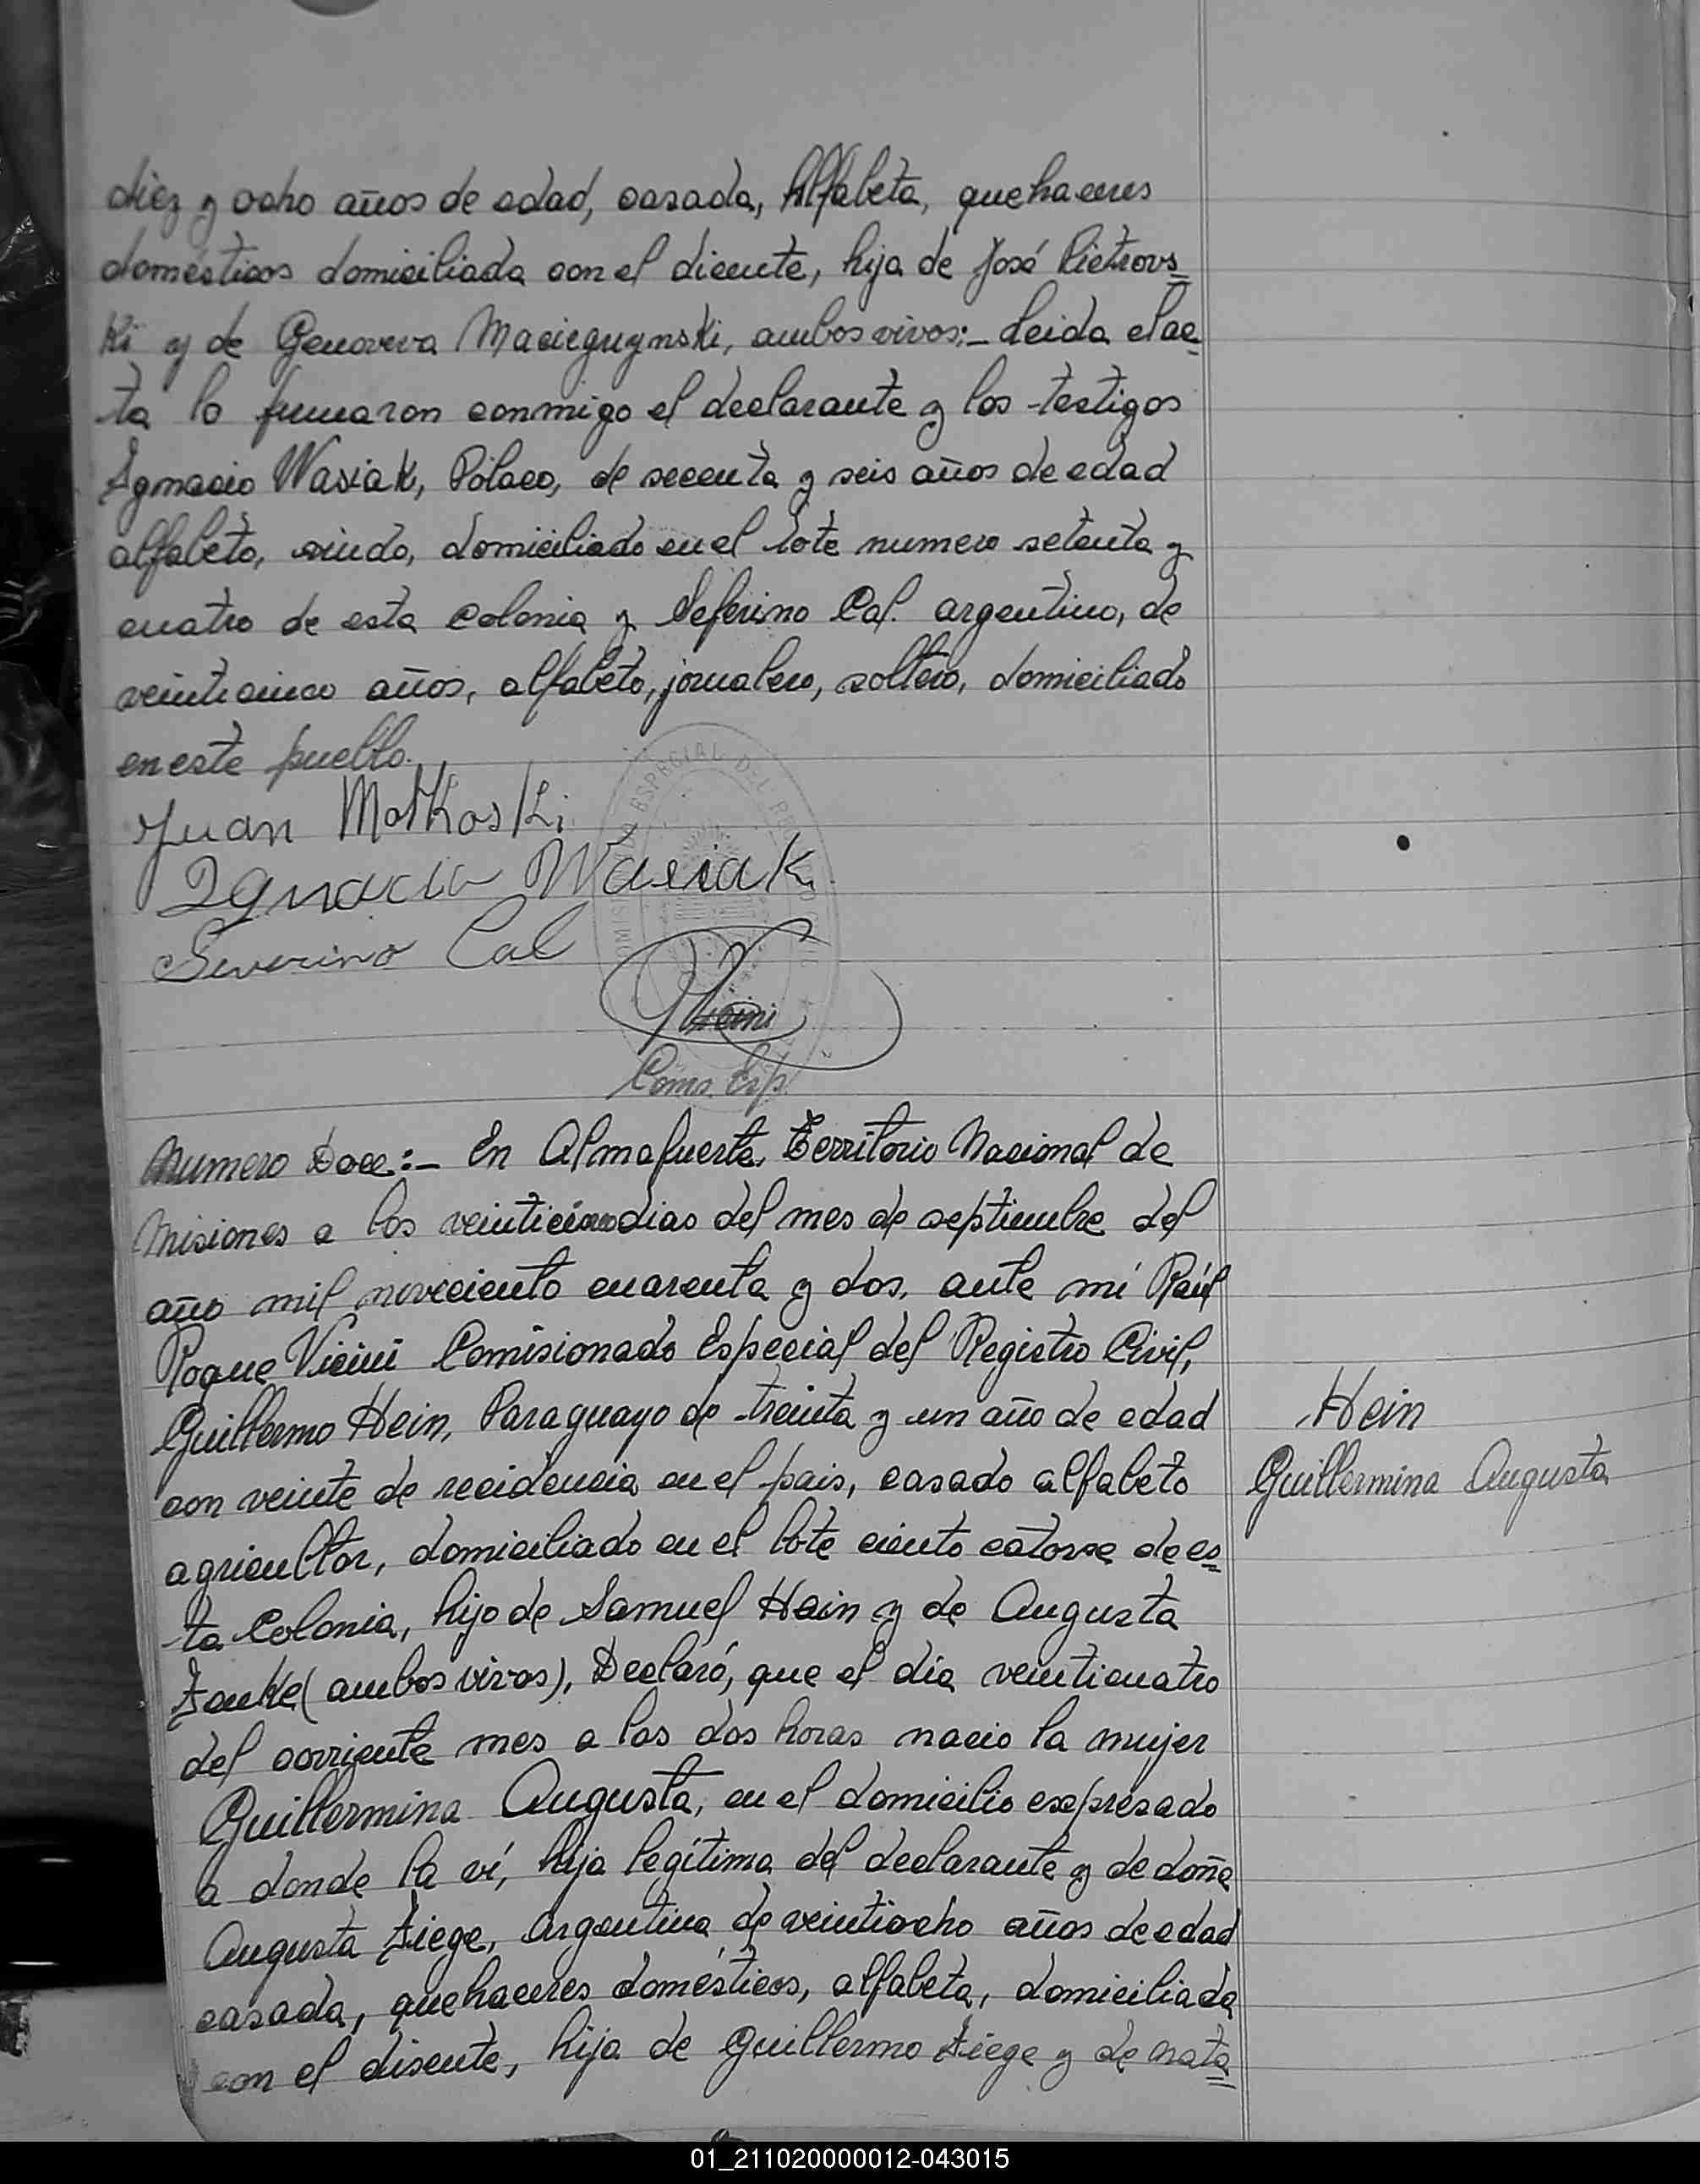 diez y ocho años de edad, casada, Alfabeta, quehaceres
domésticos domiciliada con el dicente, hija de José Pietrovs=
Ki y de Genoveva Macieguynski, ambos vivos:- Leida el ac=
ta la firmaron conmigo el declarante y los testigos
Ignacio Wasiak, Polaco, de secenta y seis años de edad
alfabeto, viudo, domiciliado en el lote numero setenta y
cuatro de esta Colonia y Seferino Cal. argentino, de
veinticinco años, alfabeto, jornalero, soltero, domiciliado
en este pueblo.
Juan Motkoski
Ignacio Wasiak
Severino Cal
Vicini
Coms. Esp.
ESPECIAL DEL
Numero Doce:- En Almafuerte, Territorio Nacional de
Misiones a los veinticinco dias del mes de septiembre del
año mil noveciento cuarenta y dos, ante mí Raúl
Roque Vicini Comisionado Especial del Registro Civil,
Guillermo Hein, Paraguayo de treinta y un año de edad
con veinte de recidencia en el pais, casado alfabeto
agricultor, domiciliado en el lote ciento catorse de es=
ta Colonia, hijo de Samuel Hein y de Augusta
(ambos vivos), Declaró, que el día veinticuatro
del corriente mes a las dos horas nacio la mujer
Guillermina Augusta, en el domicilio expresado
a donde la ví, hija legítima del declarante y de doña
Augusta Fiege, Argentina de veintiocho años de edad
casada, quehaceres domésticos, alfabeta, domiciliada
con el disente, hija de Guillermo Fiege y de Nata=
Hein
Guillermina Augusta
01_211020000012-043015